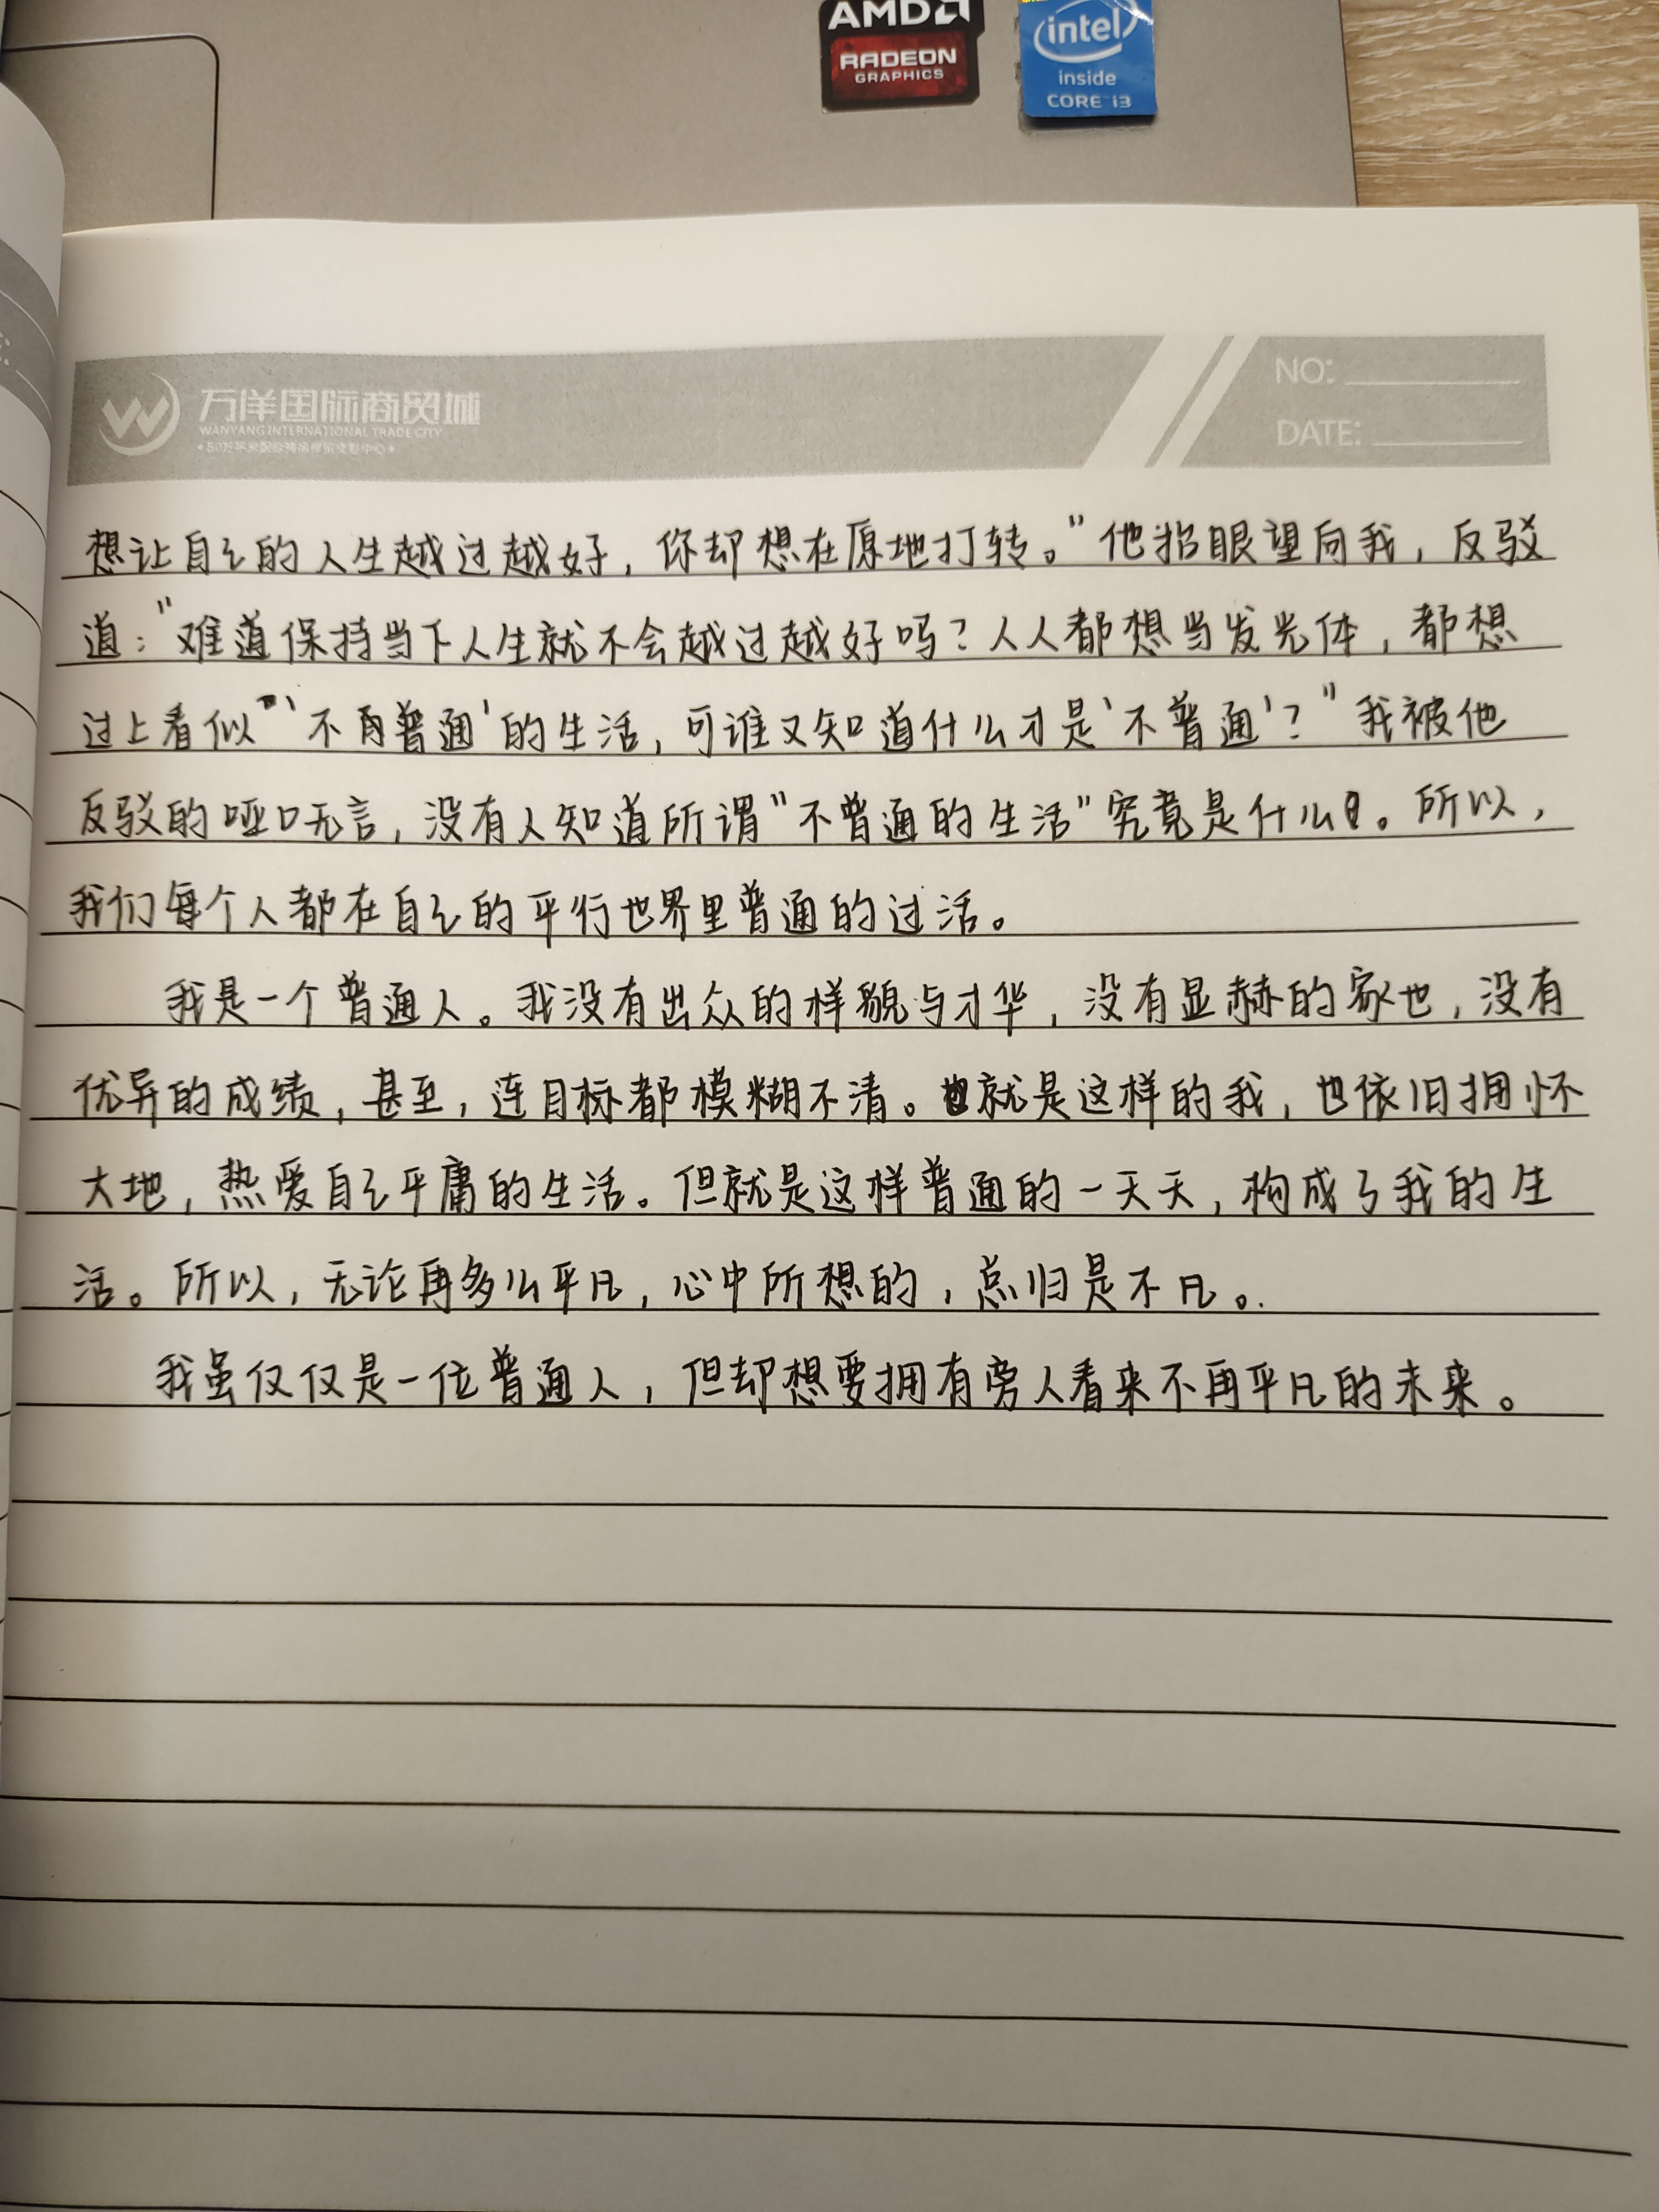 AMD
RADEON
GRAPHICS
intel
inside
CORE i3
万洋国际商贸城
WANYANG INTERNATIONAL TRADE CITY
NO:
DATE:
想让自己的人生越过越好，你却想在原地打转。”他抬眼望向我，反驳
道：“难道保持当下人生就不会越过越好吗？人人都想当发光体，都想
过上看似‘不再普通’的生活，可谁又知道什么才是‘不普通’？”我被他
反驳的哑口无言，没有人知道所谓“不普通的生活”究竟是什么。所以，
我们每个人都在自己的平行世界里普通的过活。
我是一个普通人。我没有出众的样貌与才华，没有显赫的家世，没有
优异的成绩，甚至，连目标都模糊不清。就是这样的我，也依旧拥怀
大地，热爱自己平庸的生活。但就是这样普通的一天天，构成了我的生
活。所以，无论再多么平凡，心中所想的，总归是不凡。
我虽仅仅是一位普通人，但却想要拥有旁人看来不再平凡的未来。